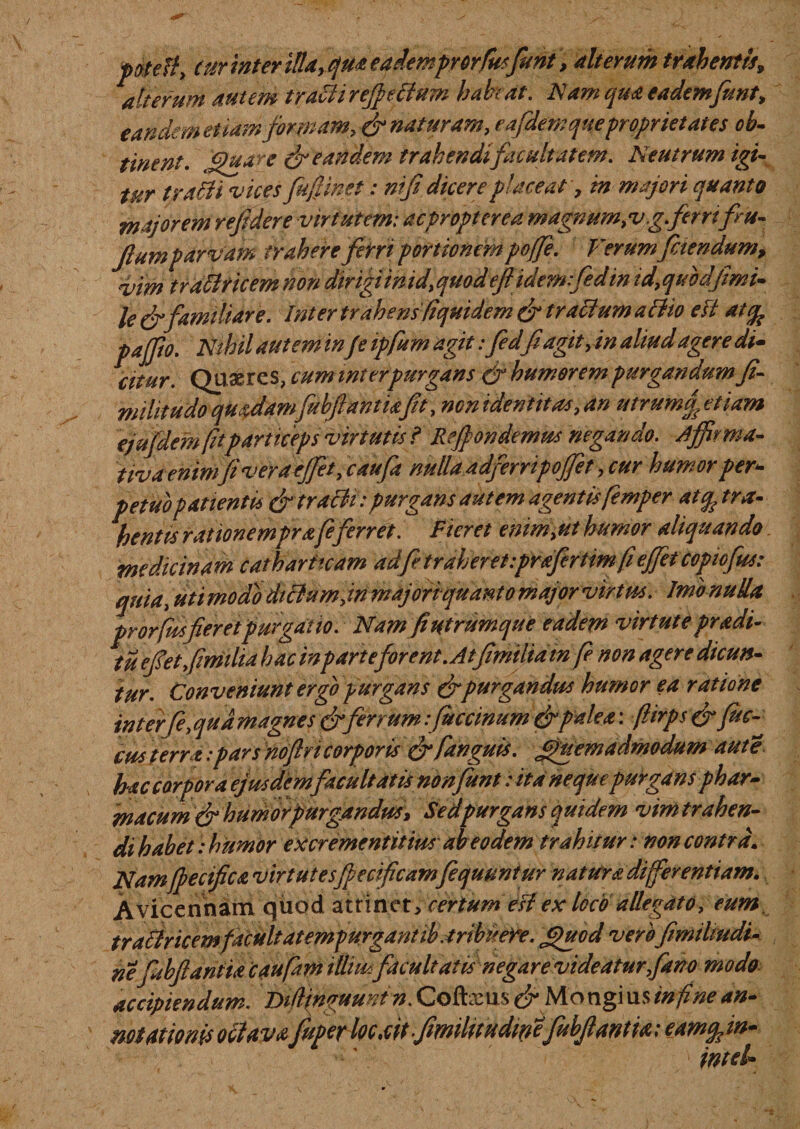 poteſt, cur inter illa, quæ eadem prorſus ſunt, alterum trahentis,
alterum autem tracti reſpectum habeat. Nam quæ eadem ſunt,
eandem etiam formam, & naturam, eaſdemque proprietates ob-
tinent. Quare & eandem trahendi facultatem. Neutrum igi-
tur tracti vices ſuſtinet: niſi dicere placeat, in majori quanto
majorem reſidere virtutem: ac propterea magnum, v.g. ferri fru-
ſtum parvam trahere ferri portionem poſſe. Verum ſciendum,
vim tractricem non dirigi in id, quod eſt idem: ſed in id, quòd ſimi-
le & familiare. Inter trahens ſiquidem & tractum actio eſt atq;
paſſio. Nihil autem in ſe ipſum agit: ſed ſi agit, in aliud agere di-
citur. Quæres, cum inter purgans & humorem purgandum ſi-
militudo quædam ſubſtantiæ ſit, non identitas, an utrumq; etiam
ejuſdem ſit particeps virtutis? Reſpondemus negando. Affirma-
tiva enim ſi vera eſſet, cauſa nulla adferri poſſet, cur humor per-
petuò patientis & tracti: purgans autem agentis ſemper atq; tra-
hentis rationem præ ſe ferret. Fieret enim, ut humor aliquando
medicinam catharticam ad ſe traheret: præſertim ſi eſſet copioſus:
quia, uti modò dictum, in majori quanto major virtus. Imò nulla
prorſus fieret purgatio. Nam ſi utrumque eadem virtute prædi-
tū eſſet, ſimilia hac in parte forent. At ſimilia in ſe non agere dicun-
tur. Conveniunt ergò purgans & purgandus humor ea ratione
inter ſe, quâ magnes & ferrum: ſuccinum & paleæ: ſtirps & ſuc-
cus terræ: pars noſtri corporis & ſanguis. Quemadmodum autē
hæc corpora ejusdem facultatis non ſunt: ita neque purgans phar-
macum & humor purgandus, Sed purgans quidem vim trahen-
di habet: humor excrementitius ab eodem trahitur: non contrà.
Nam ſpecificæ virtutes ſpecificam ſequuntur naturæ differentiam.
Avicennam quod attinet, certum eſt ex loco allegato, eum
tractricem facultatem purgantib. tribuere. Quod verò ſimilitudi-
nē ſubſtantiæ cauſam illius facultatis negare videatur, ſano modo
accipiendum. Diſtinguunt n. Coſtæus & Mongius in fine an-
notationis octavæ ſuper loc. cit. ſimilitudinē ſubſtantiæ: eamq; in-
intel-